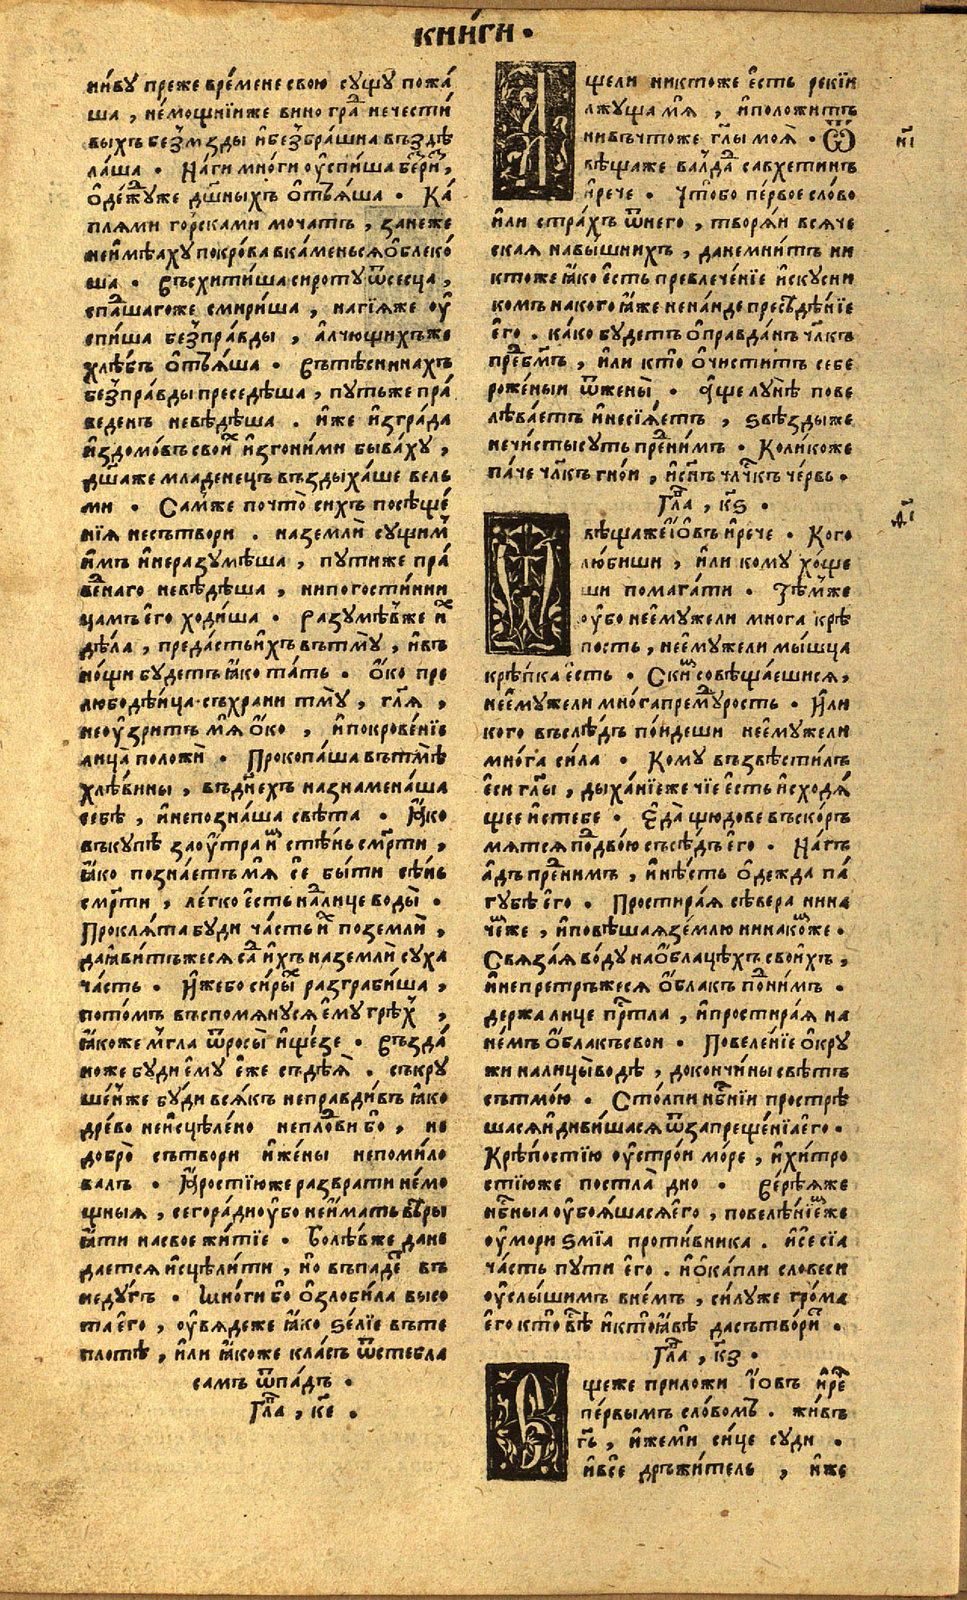 кни́ги ·
ни́ву преже вре́мене свою сущу пожа́
ша , не́мощнїиже вино гра̑ нечести́
выхъ без̾мзды и҆без̾бра́шна въздѣ
лаша · На́ги мно́ги оу҆спи́ша
о҆де́жуже дш҃ныхъ ѿъꙗ́ша · Ка́
плями го́рсками мочатъ , зане́же
неимѣ́аху покро́ва вка́меньсѧ ѡ҆блеко́
ша · Въсхити́ша сироту ѿсесца ,
спа́дшагоже смири́ша , нагїѧже оу҆
спи́ша без̾пра́вды , а҆лчющихъже
хлѣ́бъ ѿъꙗ́ша · Вътѣсни́нахъ
без̾пра́вды преседѣ́ша , путьже пра́
веденъ невѣ́дѣша . иже и҆згра́да
и҆здомо́въ свои̑ и҆згони́ми быва́ху ,
дш҃аже младе́нецъ въздыха́ше вель
ми · Са́мже почто̀ сихъ посѣще́
нїꙗ несътвори . наземли̑ сущим̾
и҆мъ и҆неразумѣ́ша , пути́же пра́
ве́наго невѣ́дѣша , нипогости́нни
цамъ е҆го̀ ходи́ша · Разумѣ́вже и҆̑
дѣ́ла , преда́стьи҆хъ вътму̀ , и҆въ
но́щи бу́детъ ꙗ҆́ко та́ть · о҆́ко пре
любодѣ́ица съхрани тму̀ , гл҃ѧ ,
неоу҆́зритъ мѧ̀ о҆́ко , и҆покрове́нїе
лица̀ положи̑ · Прокопа́ша вътмѣ̀
хлѣ́вины , въдне́хъ назнамена́ша
себѣ̀ , и҆непозна́ша свѣ́та · Ꙗ҆́ко
въку́пѣ зао́утра и҆̑ стѣ́нь см҃рти ,
ꙗ҆́ко позна́етъ мѧ̀ се̑ бы́ти сѣ́нь
см҃рти , ле́гко е҆́сть на́лице воды̀ ·
Проклѧ́та буди ча́сть и҆̑ поземли̑ ,
даꙗ҆ви́тъжесѧ и҆́хъ на земли̑ суха̀
ча́сть . И҆́жебо си́ры̑ разгра́биша ,
пото́мъ въспомѧну́сѧ е҆му̀ грѣх ,
ꙗ҆́коже мгла̀ ѿросы̀ и҆ще́зе · Въз̾да́
ноже бу́ди е҆му̀ е҆́же съдѣ́ѧ . съкру
ше́нже бу́ди всѧ́къ непра́вдивъ ꙗ҆́ко
дре́во неи҆сцѣле́но непло́дви бо , не
добро̀ сътвори и҆жены̀ непоми́ло
валъ · Ꙗ҆́ростїюже разврати не́мо
щныѧ , сегора́дноу҆бо неи҆́мать вѣры
ꙗ҆́ти насвое жи́тїе . Болѣ́вже дане
дае́тсѧ и҆сцѣли́ти , но въпаде̑ въ
неду́гъ · Мно́ги бо ѡ҆зло́била высо
та̀ е҆го̀ , оу҆вѧ́деже ꙗ҆́ко ѕе́лїе въте
плотѣ̀ , и҆́ли ꙗ҆́коже кла́съ ѿсте́бла
самъ ѿпа́дъ ·
Гла̑ , к҃е ·
А҆
щели никто́же е҆́сть рекїи
лжу́ща мѧ̀ , и҆положи́тъ
нивъчто́же гл҃ы моѧ̀ · Ѿ
вѣща́же валда̑ савхети́нъ
и҆рече · Что́бо пе́рвое сло́во
и҆́ли стра́хъ ѿнего , творѧ́и всѧ́че
скаꙗ навы́шнихъ , данемни́тъ ни
кто́же ꙗ҆́ко е҆́сть превлече́нїе и҆скусни
комъ накого ꙗ҆́же нена́иде пресѣде́нїе
е҆го̀ . ка́ко бу́детъ ѡ҆правда́нъ чл҃къ
пре̑бг҃мъ , и҆́ли кто̀ ѡ҆чи́ститъ себе
роже́ныи ѿжены̀ · А҆́ще лунѣ̀ пове
лѣва́етъ и҆несїѧ́етъ , ѕвѣ́здыже
нечи́сты су́ть пре̑ни́мъ · Коли́коже
па́че чл҃къ гно́и , и҆сн҃ъ чл҃чкъ че́рвь .
Гла̑ , к҃ѕ .
Ѿ
вѣща́же і҆́ѡвъ и҆рече · Кого
лю́биши , и҆́ли кому хо́ще
ши помага́ти · Тѣ́мже
оу҆́бо неи҆ему́жели многа крѣ́
пость , неи҆ему́жели мы́шца
крѣпка е҆́сть · Скии̑ совѣща́ешисѧ ,
неи҆ему́жели мно́га прему́дрость · И҆ли
кого въслѣ́дъ по́идеши неи҆ему́жели
мно́га си́ла · Кому възвѣсти́лъ
е҆си гл҃ы , дыха́нїеже чїе е҆́сть и҆сходѧ́
щее и҆стебе · Е҆да̀ щюдове въско́рѣ
мѧ́тсѧ по́двою съсѣ́дъ е҆го̀ · На́гъ
а҆́дъ пре̑ни́мъ , и҆нѣ́сть о҆де́жда па́
губѣ е҆го̀ · Простира́ѧ сѣ́вера нина
че́же , и҆повѣ́шаꙗ зе́млю нинако́же ·
Свѧза́ѧ во́ду наѡ҆́блацѣхъ свои́хъ ,
и҆непретръ́жесѧ ѡ҆́блакъ по̑ни́мъ ·
держа лице пр҃тла , и҆простира́ѧ на
не́мъ ѡ҆́блакъ свои · Повелѣ́нїе ѡ҆кру
жи налицы̀ водѣ̀ , докончи́ны свѣ́тъ
сътмо́ю . Столпи нб҃нїи простре́
шасѧ и҆диви́шасѧ ѿзапреще́нїа е҆го .
Крѣ́постїю оу҆стро́и мо́ре , и҆хи́тро
стїюже постла̀ дно · Вере́ѧже
нб҃ныа оу҆боѧ́шасѧ е҆го , повелѣ́нїеже
оу҆мори ѕмїа проти́вника . и҆се́ сїа
ча́сть пути е҆го . и҆ѡ҆ка́пли словеси
оу҆слы́шимъ вне́мъ , си́луже гро́ма
е҆го кто̀ вѣ̀ и҆кто̀ ꙗ҆́вѣ дасътвори̑ .
Гла̑ , к҃з ·
Е
щеже приложи і҆ѡвъ и҆рече̑
пе́рвымъ сло́вомъ . жи́въ
гь҃ , и҆жемѝ си́це суди ·
и҆все́ дръжи́тель , и҆же
н҃і
д҃і